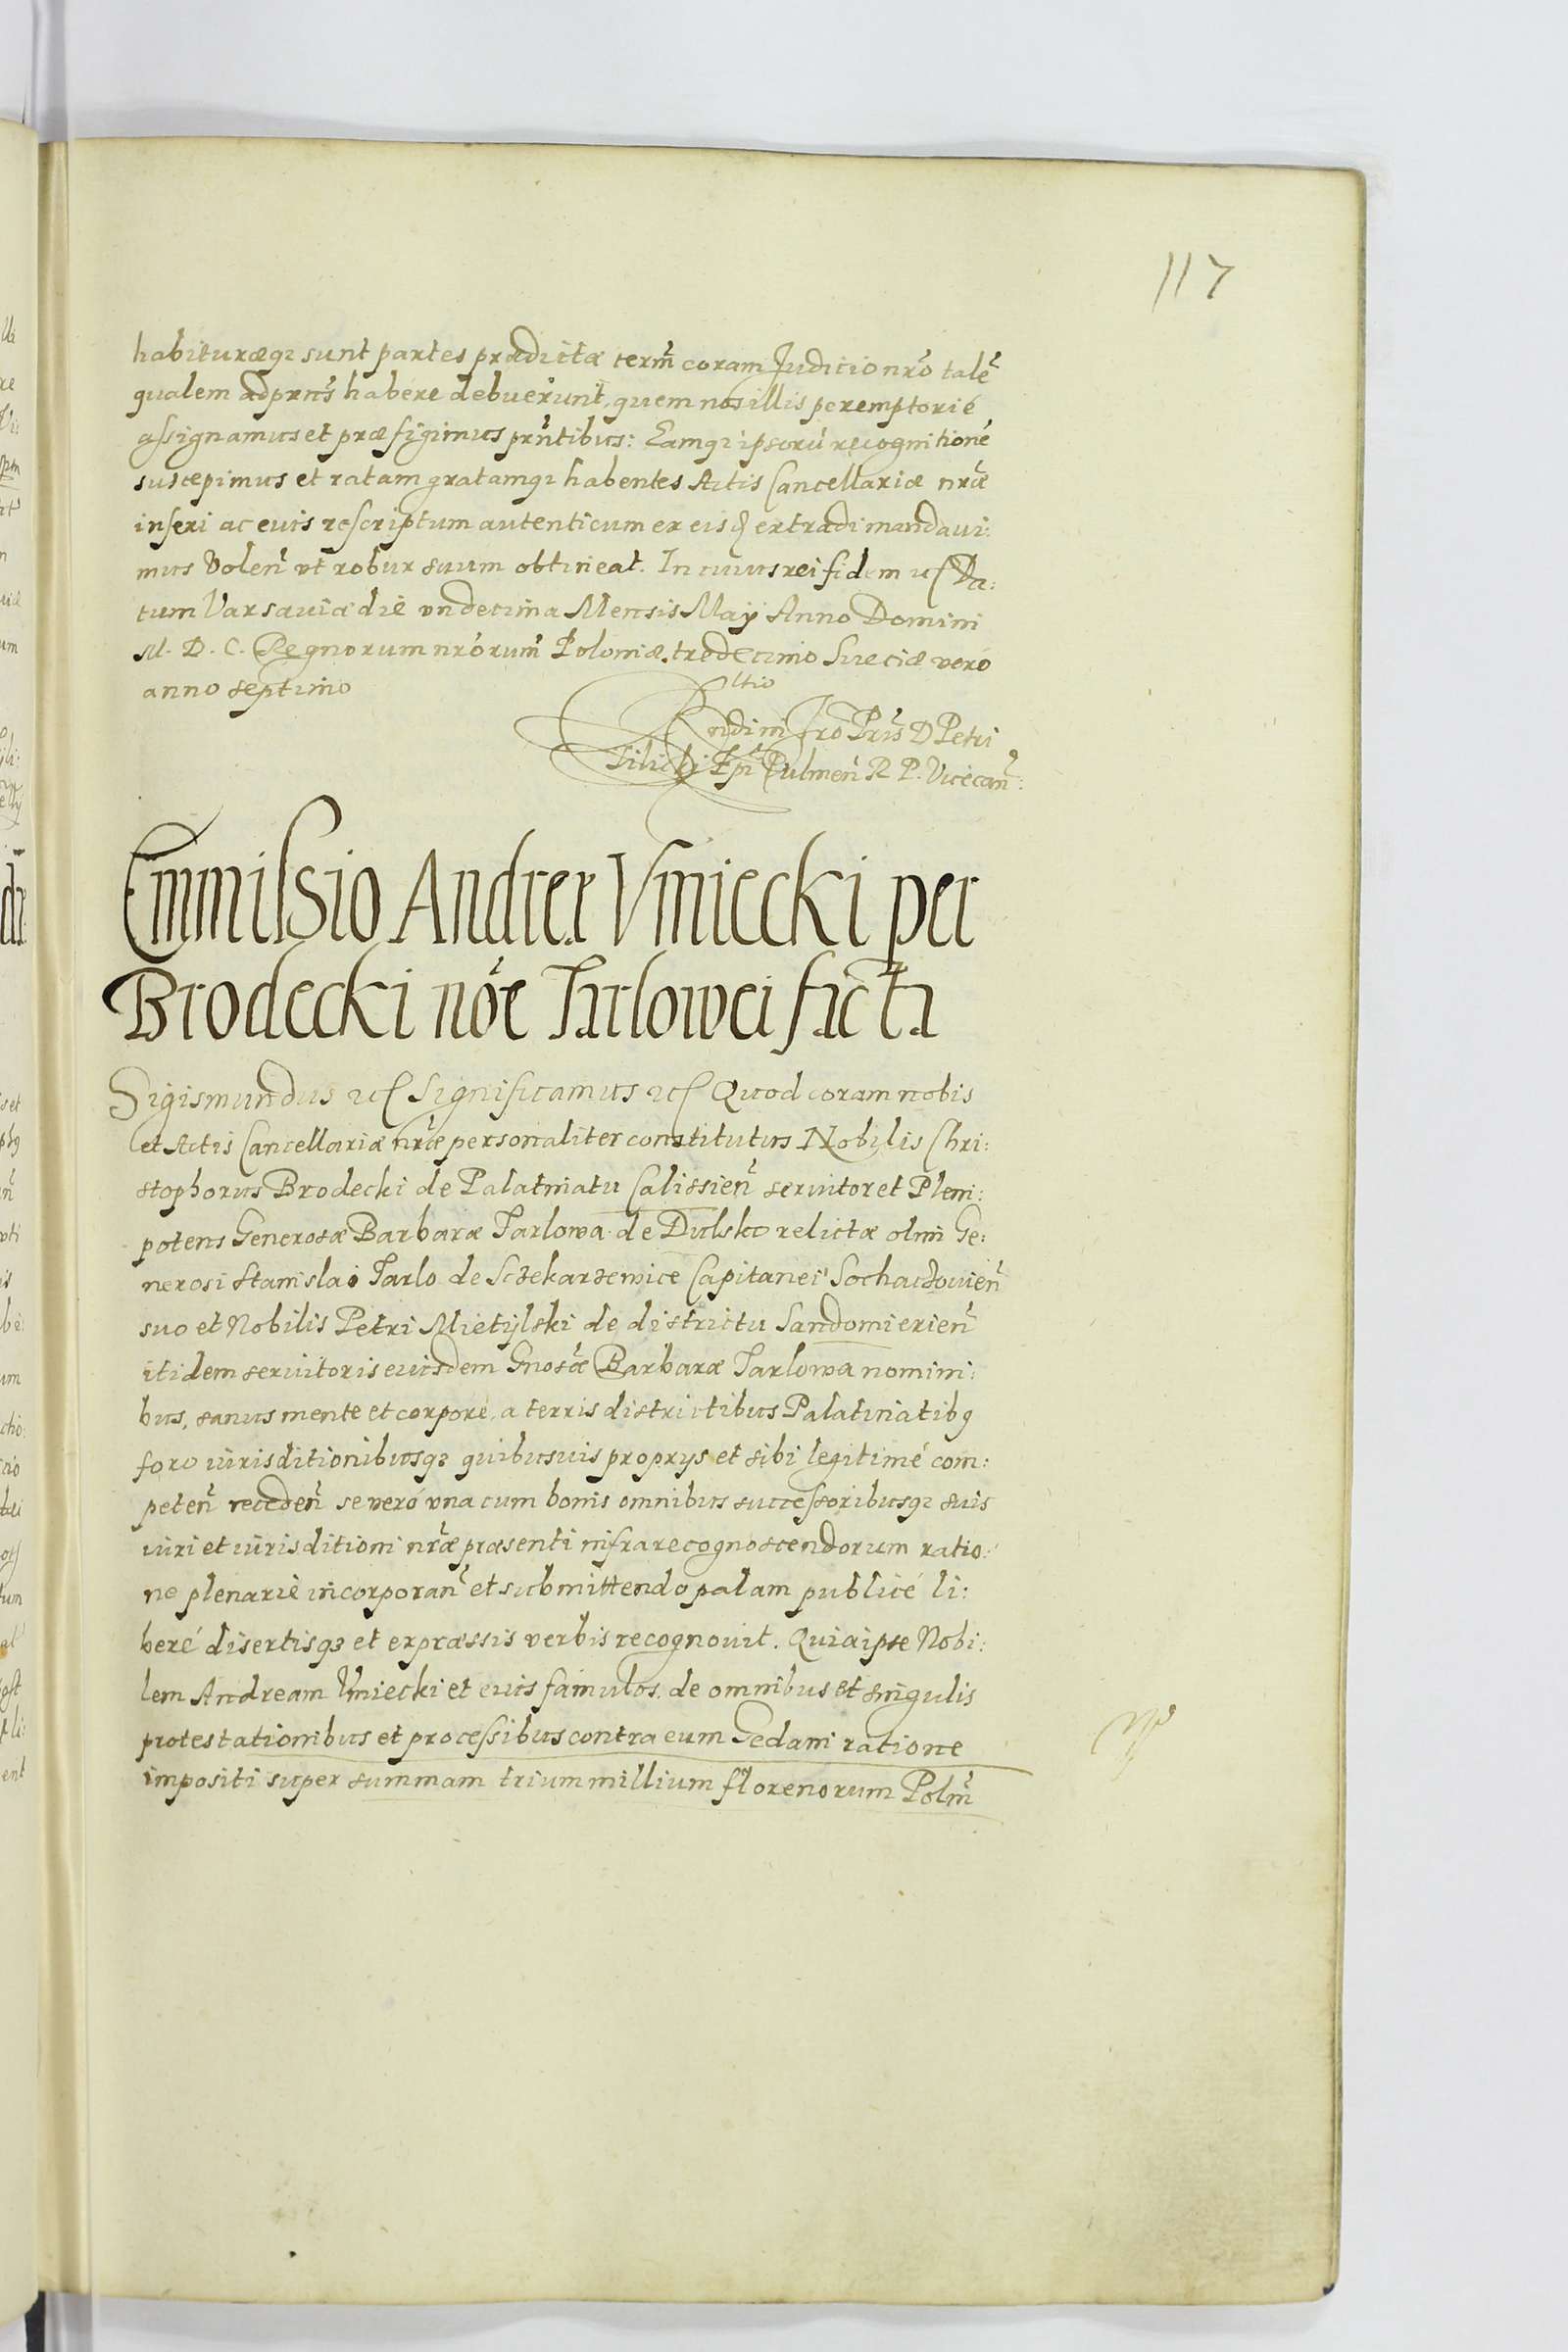 117
habituræq3 sunt partes prædictæ term̃ coram Juditio nrõ talẽ
qualem ad prñs habere debuerunt, quem nos illis peremptorié
assignamus et præfigimus prñtibus: Eamq3 ipsorũ recognitionẽ
suscepimus et ratam gratamq3 habentes Actis Cancellariæ nræ̃
inseri ac euis rescriptum autenticum ex eisd extradi mandaui:
mus Volen̄ vt robur suum obtineat. In cuius rei fidem etc Da:
tum Varsauiæ die vndecima Mensis Maÿ Anno Domini
M. D. C. Regnorum nrõrum Poloniæ tredecimo Sueciæ vero
anno septimo
Rndi in Xro Pris D Petri
Tilicki Epi Culmeñ R P. Vicecañ:
Emmissio Andreæ Vmiecki per
Brodecki nõe Tarlowei facta
Sigismundus etc Significamus etc Quod coram nobis
et Actis Cancellariæ nræ̃ personaliter constitutus Nobilis Chri:
stophorus Brodecki de Palatinatu Calissieñ seruitor et Pleni:
potens Generosæ Barbaræ Tarlowa de Dulsko relictæ olim Ge:
nerosi Stanislai Tarlo de Sczekarzewice Capitanei Sochaczouieñ
suo et Nobilis Petri Mietÿlski de districtu Sandomierieñ
itidem seruitoris euisdem Gnosæ̃ Barbaræ Tarlowa nomini:
bus, sanus mente et corpore, a terris districtibus Palatinatibq
foro iurisditionibusq3 quibusuis proprys et sibi legitimé com:
peteñ recedeñ se veró vna cum bonis omnibus successoribusq3 suis
iuri et iurisditioni nræ̃ præsenti infrarecognoscendorum ratio:
ne plenarie incorporañ et submittendo palam publicé li:
beré disertisq3 et expræssis verbis recognouit. Quia ipse Nobi:
lem Andream Vmiecki et euis famulos de omnibus et singulis
protestationibus et processibus contra eum Gedani ratione
impositi super summam trium millium florenorum Polm̃